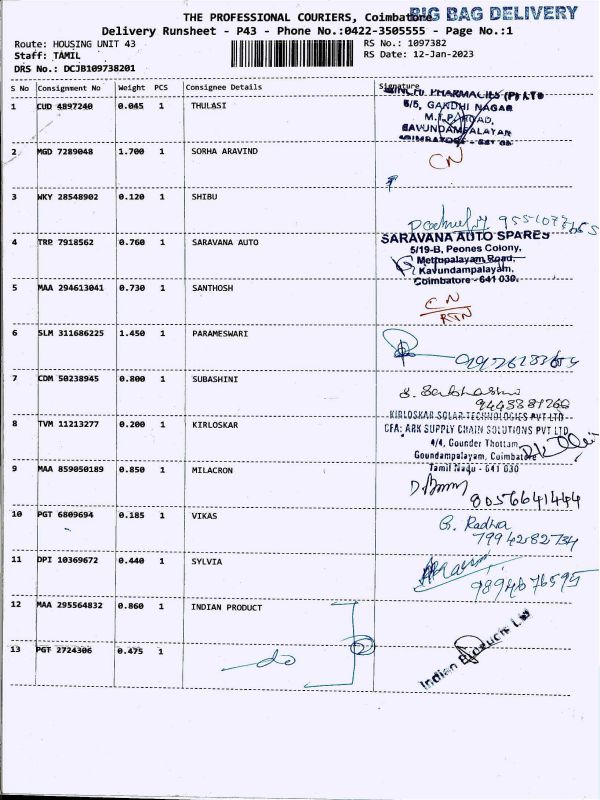 THE PROFESSIONAL COURIERS, Coimbatore
BIG BAG DELIVERY
Delivery Runsheet - P43 - Phone No.:0422-3505555 - Page No.:1
Route: HOUSING UNIT 43
RS No.: 1097382
Staff: TAMIL
RS Date: 12-Jan-2023
DRS No.: DCJB109738201
S No Consignment No Weight PCS Consignee Details Signature
1 CUD 4897240 0.045 1 THULASI
PHARMACIES (P) LTD
5/5, GANDHI NAGAR
M.T.P. ROAD,
GAVUNDAMPALAYAM
COIMBATORE
2 MGD 7289048 1.700 1 SORHA ARAVIND
CN
3 WKY 28548902 0.120 1 SHIBU
4 TRP 7918562 0.760 1 SARAVANA AUTO
SARAVANA AUTO SPARES
5/19-B, Peones Colony,
Mettupalayam Road,
Kavundampalayam,
Coimbatore - 641 030.
5 MAA 294613041 0.730 1 SANTHOSH
CN
RTN
6 SLM 311686225 1.450 1 PARAMESWARI
7 CDM 50238945 0.800 1 SUBASHINI
8 TVM 11213277 0.200 1 KIRLOSKAR
KIRLOSKAR SOLAR TECHNOLOGIES PVT LTD
CFA: ARK SUPPLY CHAIN SOLUTIONS PVT LTD
4/4, Gounder Thottam,
Goundampalayam, Coimbatore
Tamil Nadu - 641 030
9 MAA 859050189 0.850 1 MILACRON
8056641444
10 PGT 6809694 0.185 1 VIKAS
G. Radha
7994282734
11 DPI 10369672 0.440 1 SYLVIA
9894676595
12 MAA 295564832 0.860 1 INDIAN PRODUCT
Indian Products Ltd
13 PGT 2724306 0.475 1
do